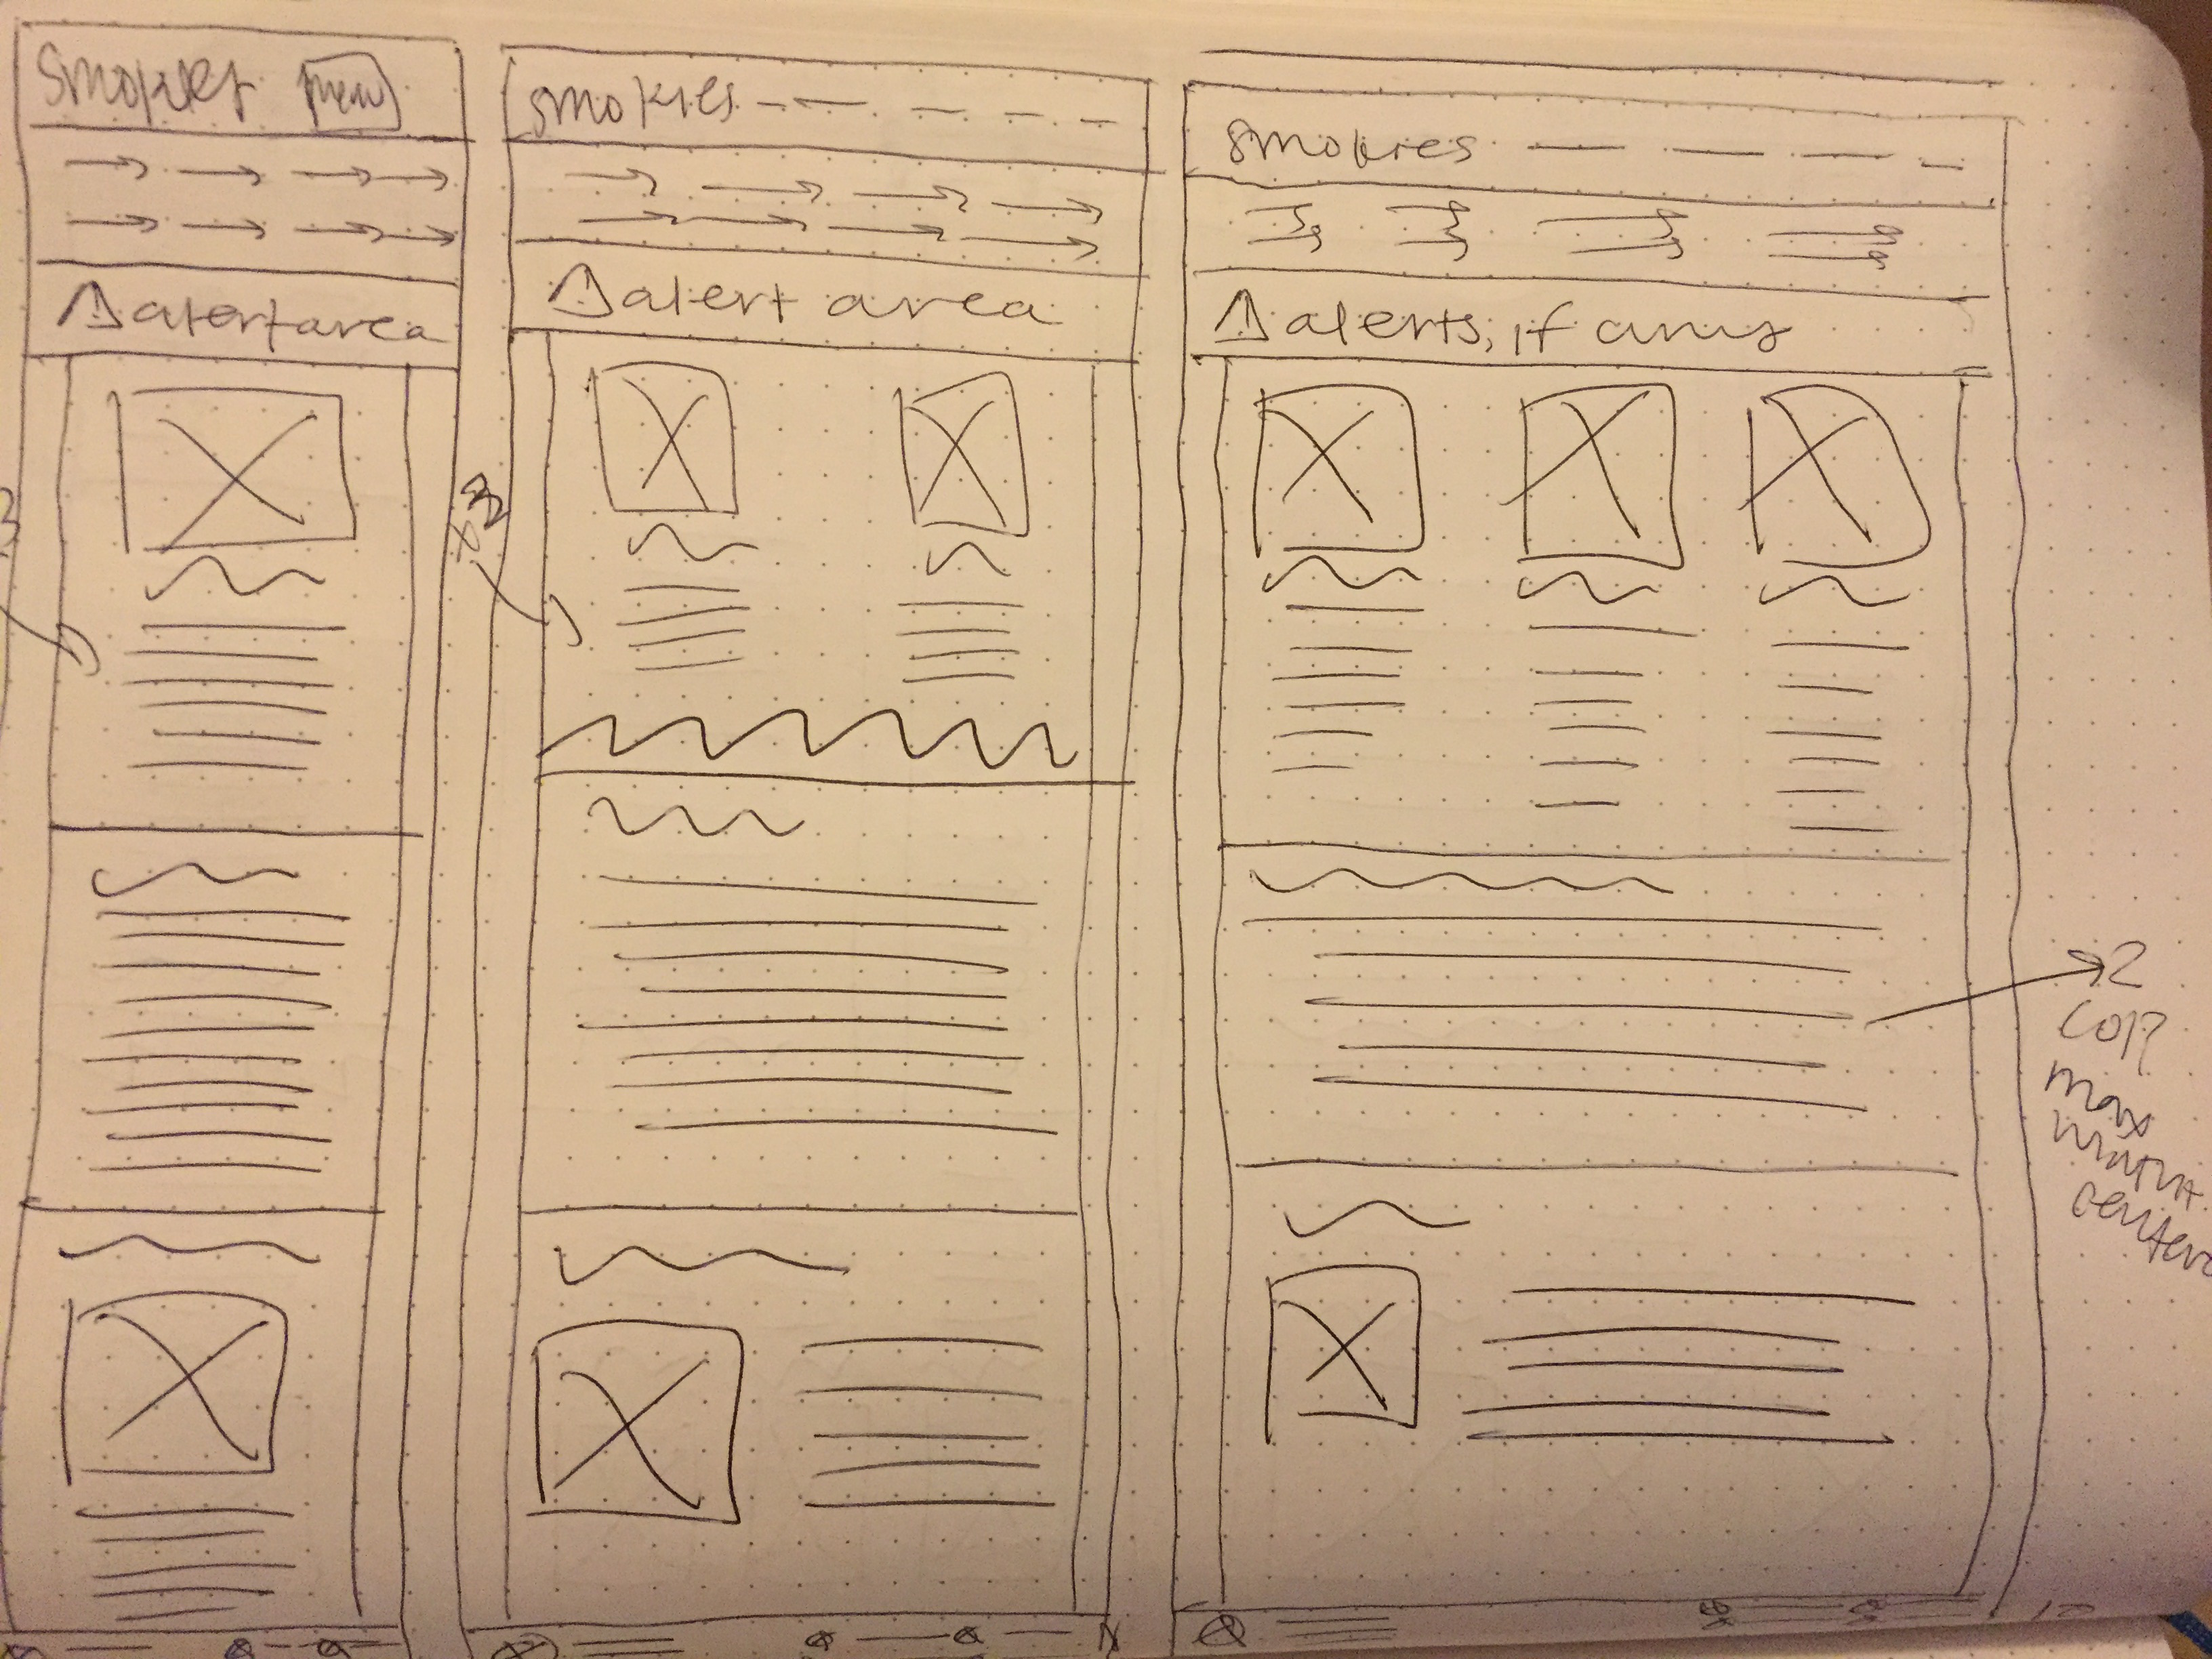 smokies menu
alert area
x3
smokies
alert area
smokies
alerts, if any
2
col?
max
width
center